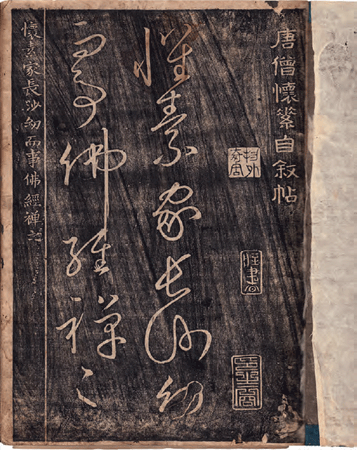 唐僧懷素自敘帖
懷素家長沙幼
而事佛經禪之
懷素家長沙幼而事佛經禪之